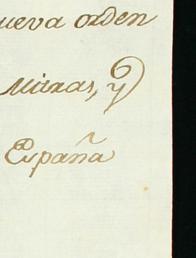 ueva orden
Miras, y
España